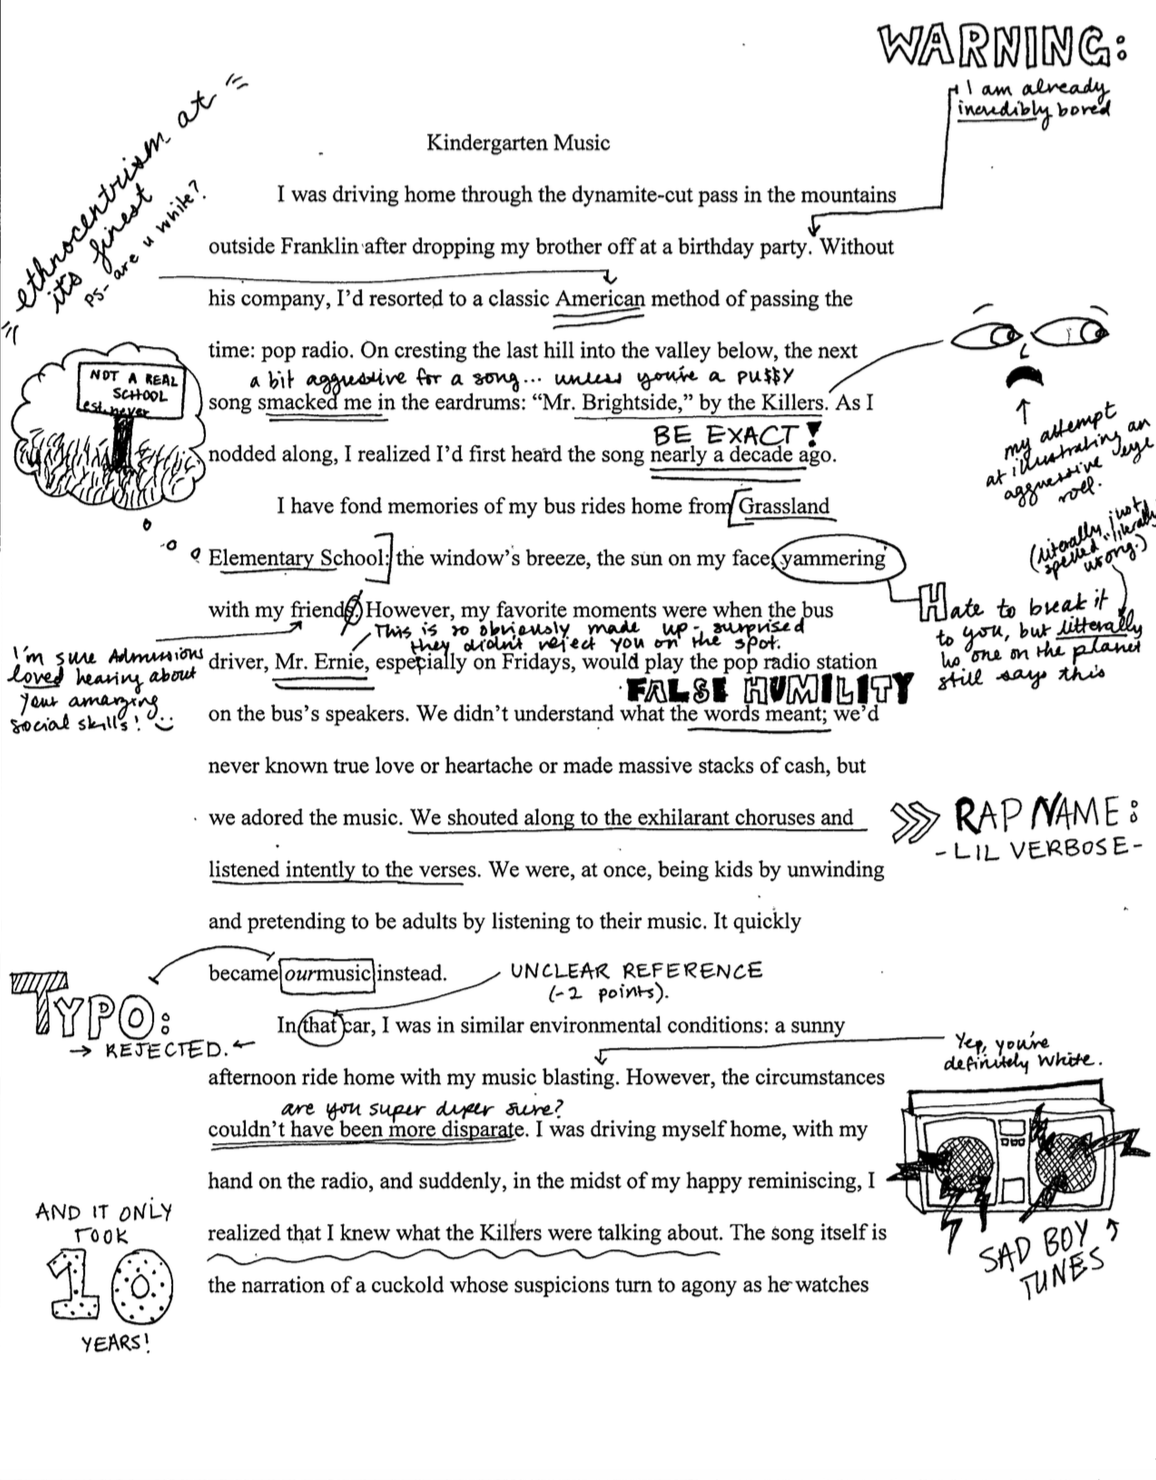 WARNING:
I am already
incredibly bored
"ethnocentrism at
its finest"
PS- are u white?
Kindergarten Music
I was driving home through the dynamite-cut pass in the mountains
outside Franklin after dropping my brother off at a birthday party. Without
his company, I'd resorted to a classic American method of passing the
time: pop radio. On cresting the last hill into the valley below, the next
a bit aggressive for a song... unless you're a pu$$y
song smacked me in the eardrums: “Mr. Brightside,” by the Killers. As I
BE EXACT!
nodded along, I realized I'd first heard the song nearly a decade ago.
NOT A REAL
SCHOOL
est. never
my attempt
at illustrating an
aggressive eye
roll.
I have fond memories of my bus rides home from Grassland
Elementary School: the window's breeze, the sun on my face, yammering
(literally just
spelled "literally"
wrong.)
Hate to break it
to you, but litterally
no one on the planet
still says this
with my friends. However, my favorite moments were when the bus
This is so obviously made up - surprised
they didn't reject you on the spot.
driver, Mr. Ernie, especially on Fridays, would play the pop radio station
I'm sure Admissions
loved hearing about
your amazing
social skills!
FALSE HUMILITY
on the bus's speakers. We didn't understand what the words meant; we'd
never known true love or heartache or made massive stacks of cash, but
we adored the music. We shouted along to the exhilarant choruses and
RAP NAME:
-LIL VERBOSE-
listened intently to the verses. We were, at once, being kids by unwinding
and pretending to be adults by listening to their music. It quickly
became ourmusic instead.
UNCLEAR REFERENCE
(-2 points).
TYPO:
→ REJECTED. ←
In that car, I was in similar environmental conditions: a sunny
Yep, you're
definitely white.
afternoon ride home with my music blasting. However, the circumstances
are you super duper sure?
couldn't have been more disparate. I was driving myself home, with my
hand on the radio, and suddenly, in the midst of my happy reminiscing, I
realized that I knew what the Killers were talking about. The song itself is
the narration of a cuckold whose suspicions turn to agony as he watches
SAD BOY
TUNES
AND IT ONLY
TOOK
10
YEARS!